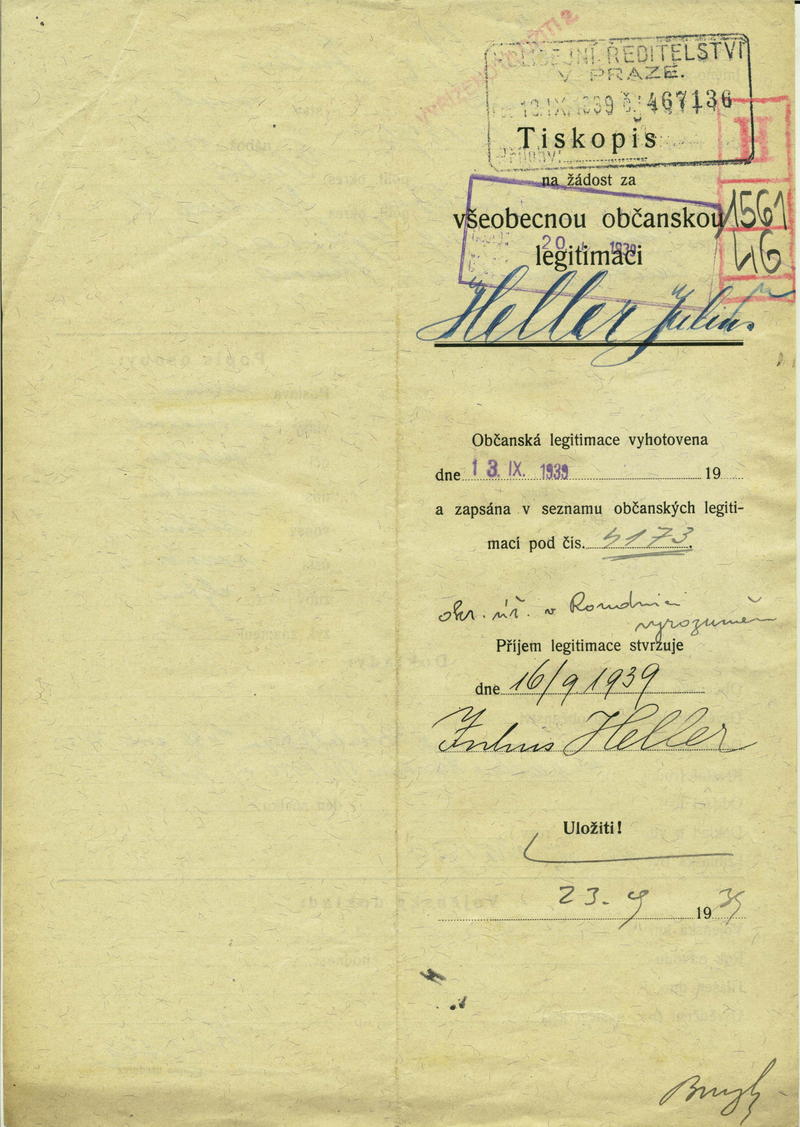 ŘEDITELSTVÍ
V PRAZE.
13.IX.1939 č. 467136
Tiskopis
Přílohy:
na žádost za
H
všeobecnou občanskou
1561
20. 1939
legitimaci
46
Heller Julius
Občanská legitimace vyhotovena
dne 13. IX. 1939 19
a zapsána v seznamu občanských legiti-
mací pod čís. 4173.
okr. úř. v Roudnici
vyrozuměn
Příjem legitimace stvrzuje
dne 16/9 1939
Julius Heller
Uložiti!
23. 9 1939